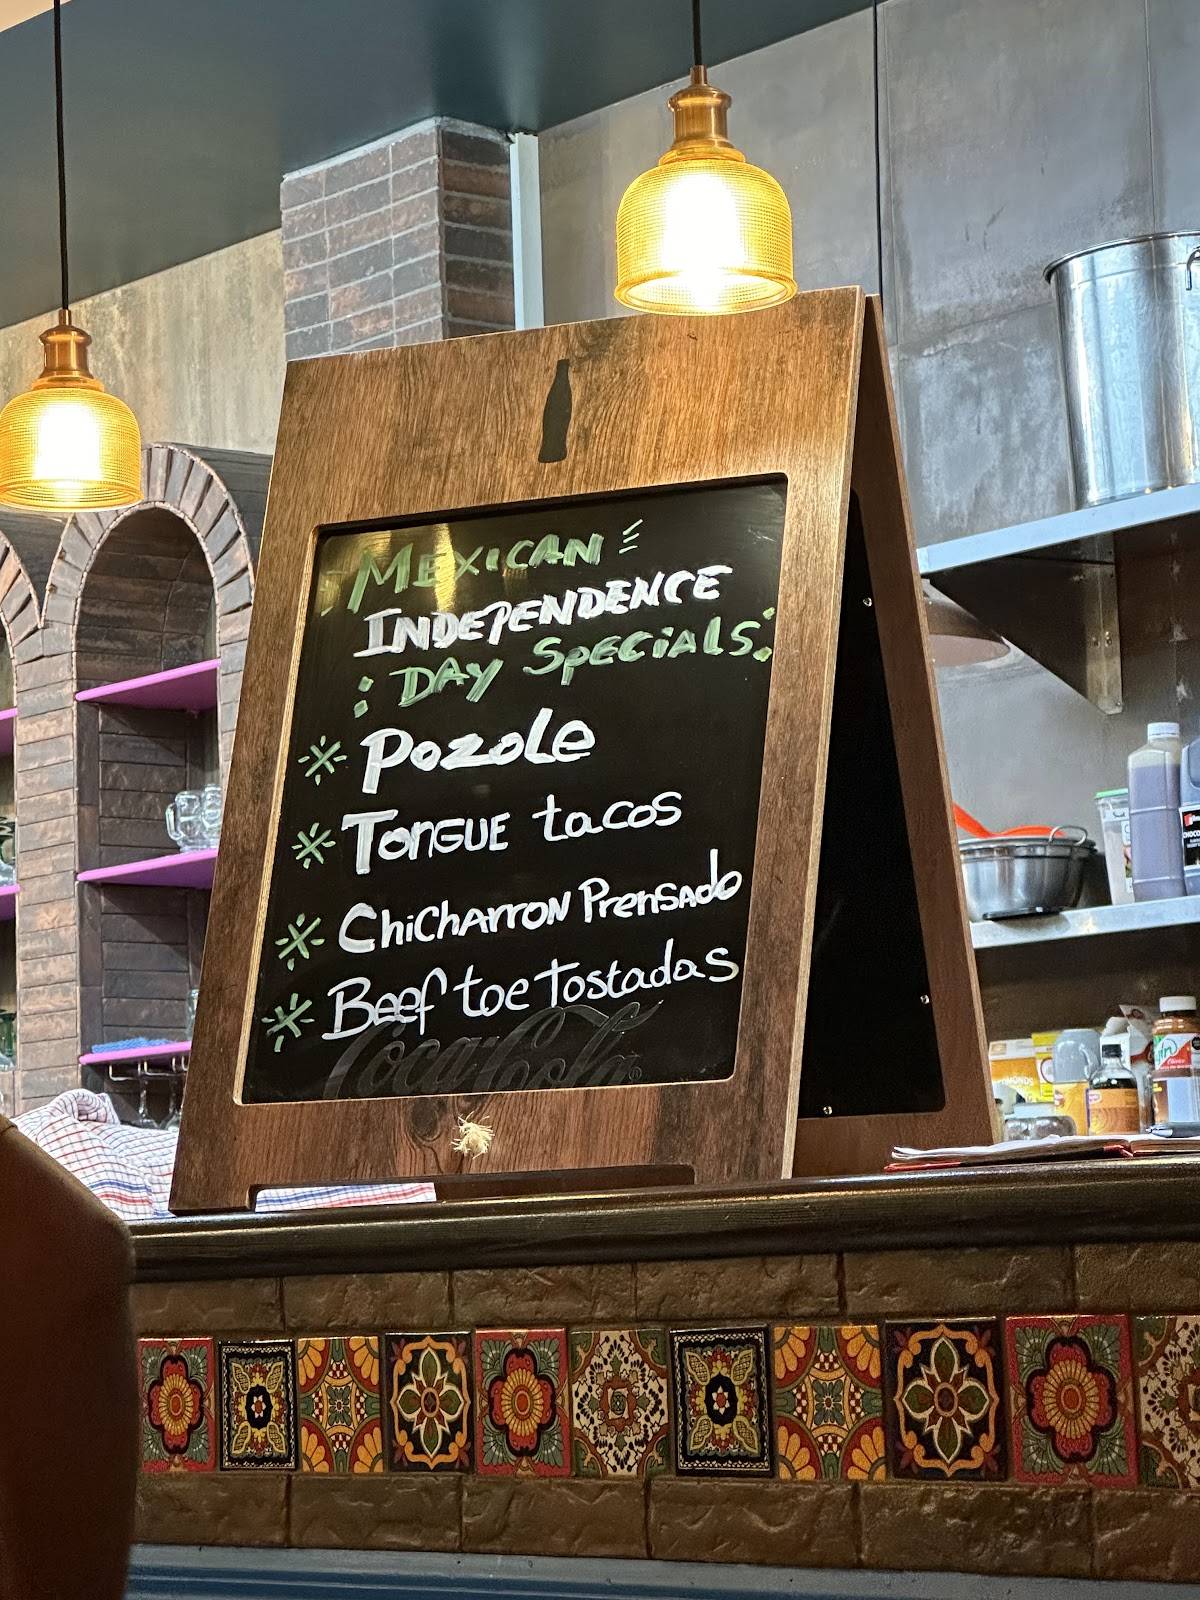 MEXICAN
INDEPENDENCE
DAY SPECiALS
Pozole
TONGUE tacos
ChiCharroN Prensado
Beef toe Tostadas
Coca-Cola